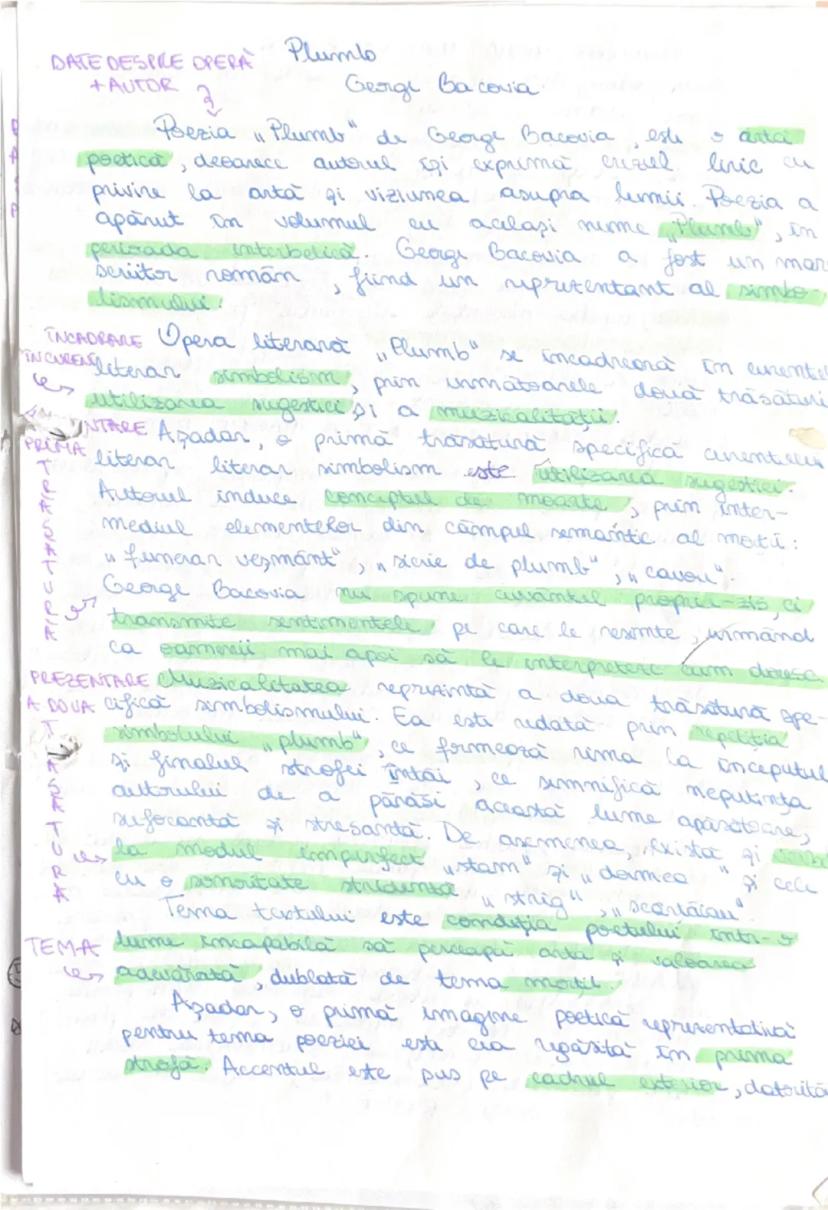 DATE DESPRE OPERĂ
+ AUTOR
Plumb
George Bacovia
Poezia „Plumb" de George Bacovia, este o artă
poetică, deoarece autorul își exprimă crezul liric cu
privire la artă și viziunea asupra lumii. Poezia a
apărut în volumul cu același nume „Plumb", în
perioada interbelică. George Bacovia a fost un mare
scriitor român, fiind un reprezentant al simbo-
lismului.
ÎNCADRARE
ÎN CURENT
Opera literară „Plumb" se încadrează în curentul
literar simbolism, prin următoarele două trăsături
utilizarea sugestiei și a muzicalității.
PRIMA TRĂSĂTURĂ
Așadar, o primă trăsătură specifică curentului
literar literar simbolism este utilizarea sugestiei.
Autorul induce conceptul de moarte, prin inter-
mediul elementelor din câmpul semantic al morții:
„funerar veșmânt", „sicrie de plumb", „cavou".
George Bacovia nu spune cuvântul propriu-zis, ci
transmite sentimentele pe care le resimte, urmând
ca oamenii mai apoi să le interpreteze cum doresc
PREZENTARE
A DOUA
TRĂSĂTURĂ
Muzicalitatea reprezintă a doua trăsătură spe-
cifică simbolismului. Ea este redată prin repetiția
simbolului „plumb", ce formează rima la începutul
și finalul strofei întâi, ce semnifică neputința
autorului de a părăsi această lume apăsătoare,
sufocantă și stresantă. De asemenea, există și
la modul imperfect „stam" și „dormea" și cele
cu o sonoritate stridentă „strig", „scârțâiau".
TEMA
Tema textului este condiția poetului într-o
lume incapabilă să perceapă arta și valoarea
adevărată, dublată de tema morții.
Așadar, o primă imagine poetică reprezentativă
pentru tema poeziei este cea regăsită în prima
strofă. Accentul este pus pe cadrul exterior, datorită